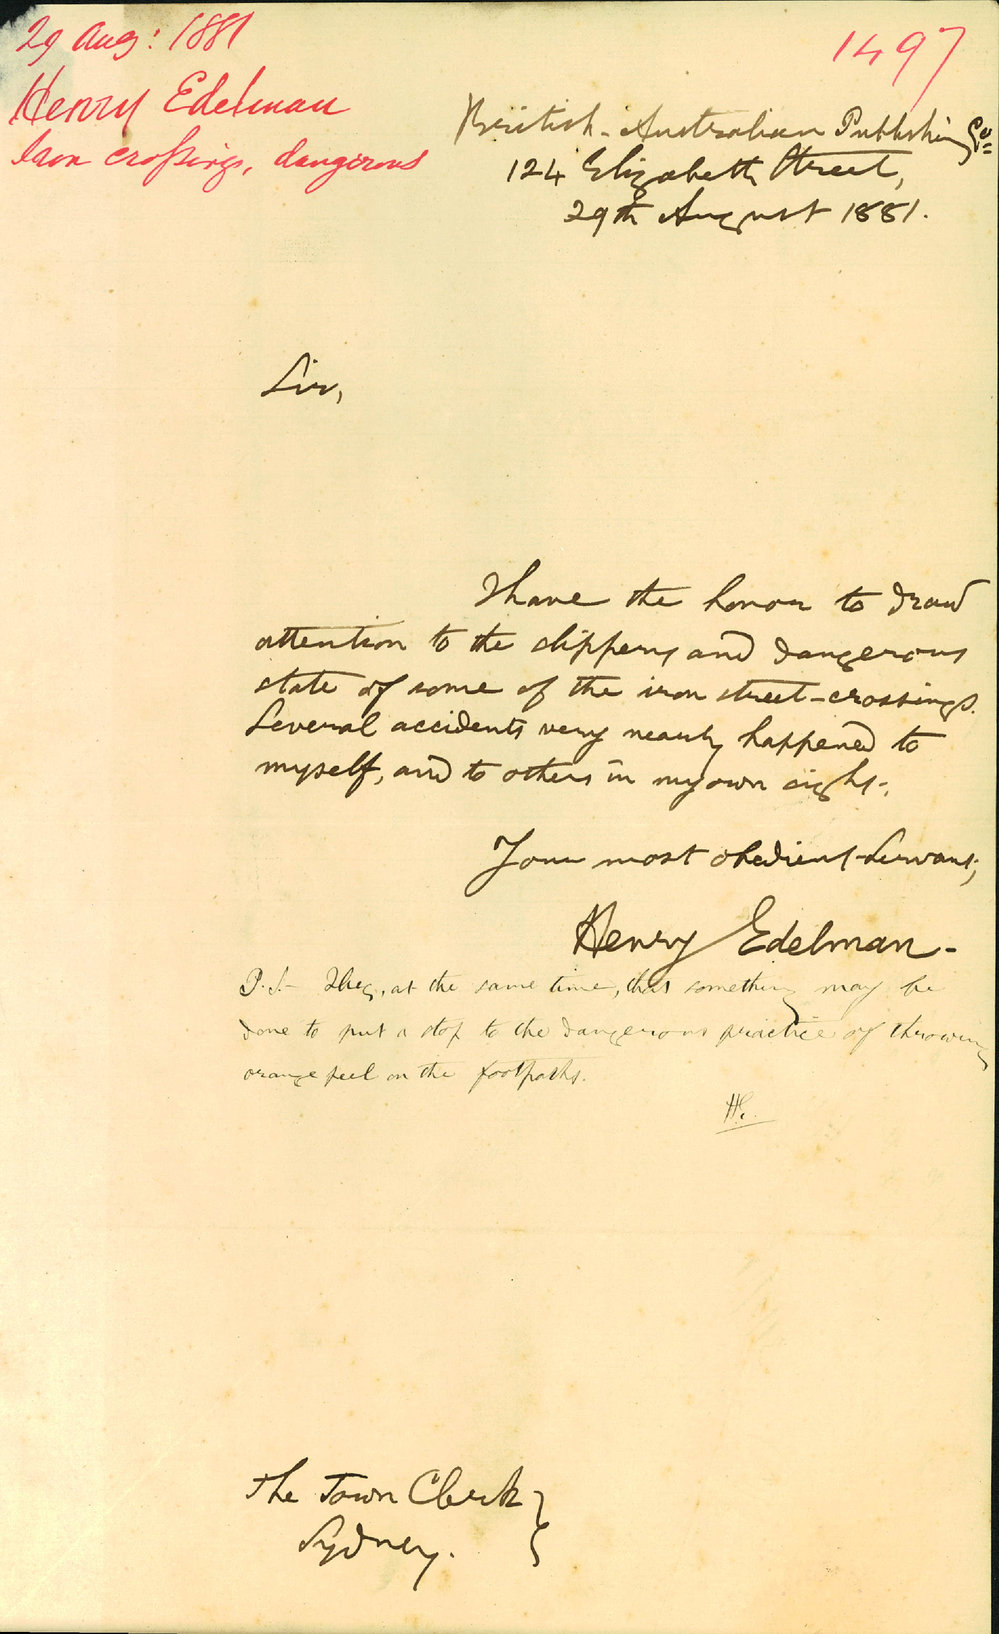 29 Aug: 1881
Henry Edelman
Iron crossings, dangerous
1497
British-Australian Publishing Co=
124 Elizabeth Street,
29th August 1881.
Sir,
I have the honour to draw
attention to the slippery and dangerous
state of some of the iron street-crossings.
Several accidents very nearly happened to
myself, and to others in my own sight.
Your most obedient Servant,
Henry Edelman-
P.S.- I beg, at the same time, that something may be
done to put a stop to the dangerous practice of throwing
orange peel on the footpaths.
HE.
The Town Clerk }
Sydney.